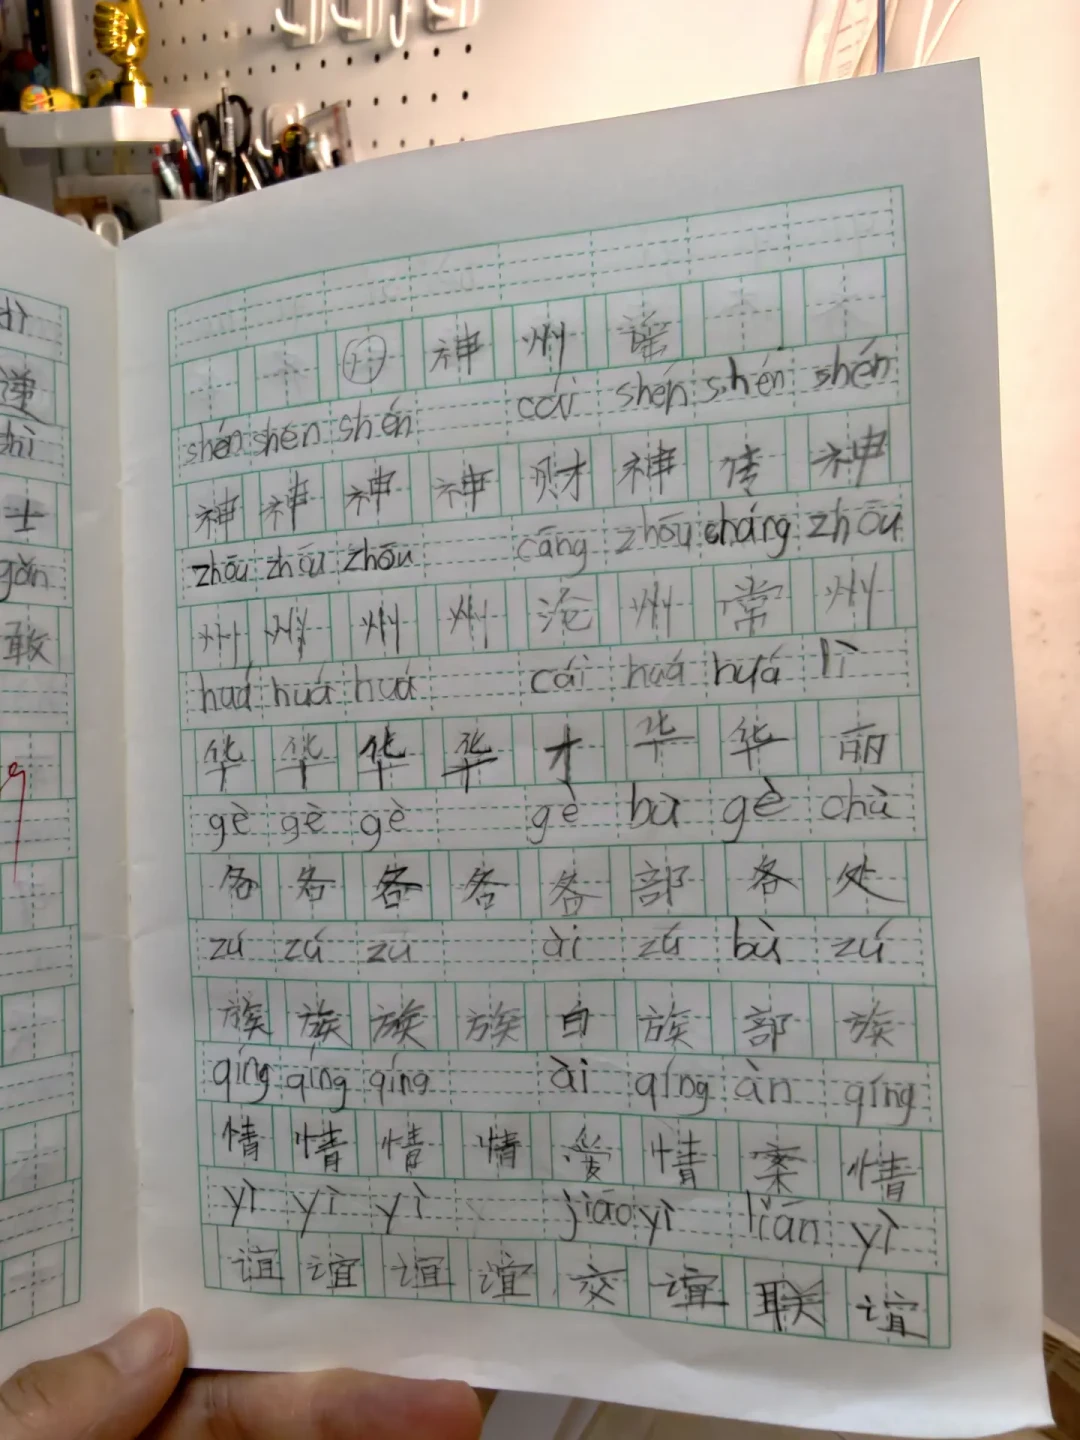 州 神 州 谣
shén shén shén cái shén shén shén
神 神 神 神 财 神 传 神
zhōu zhōu zhōu cāng zhōu cháng zhōu
州 州 州 州 沧 州 常 州
huá huá huá cái huá huá lì
华 华 华 华 才 华 华 丽
gè gè gè gè bù gè chù
各 各 各 各 各 部 各 处
zú zú zú ài zú bù zú
族 族 族 族 白 族 部 族
qíng qíng qíng ài qíng àn qíng
情 情 情 情 爱 情 案 情
yì yì yì jiāo yì lián yì
谊 谊 谊 谊 交 谊 联 谊
递
士
gǎn
敢